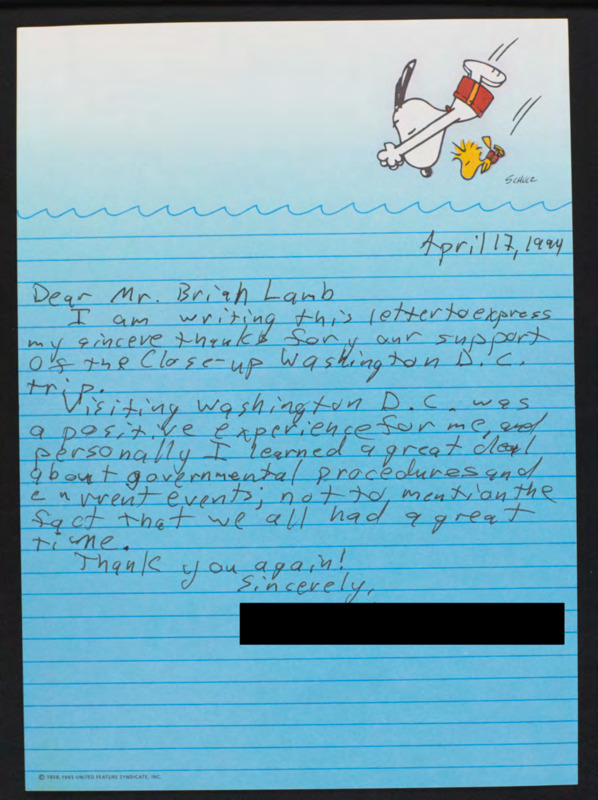 SCHULZ
April 17, 1994
Dear Mr. Brian Lamb
I am writing this letter to express
my sincere thanks for your support
of the Close-up Washington D.C.
trip.
Visiting Washington D.C. was
a positive experience for me, and
personally I learned a great deal
about governmental procedures and
current events; not to mention the
fact that we all had a great
time.
Thank you again!
Sincerely,
© 1958, 1965 UNITED FEATURE SYNDICATE, INC.